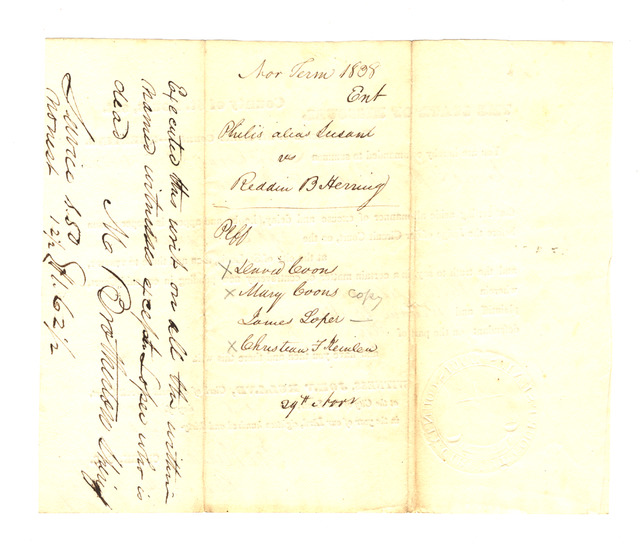 Nov Term 1838
Ent
Philis alias Susan
vs
Reddin B Herring
Plff
X David Coon
X Mary Coons copy
James Loper —
X Christian F
29th Novr
Executed this writ on all the within
named witnesses except Loper who is
dead
M Brotherton Sheriff
Service $.50
nonest 12½ } $1.62½